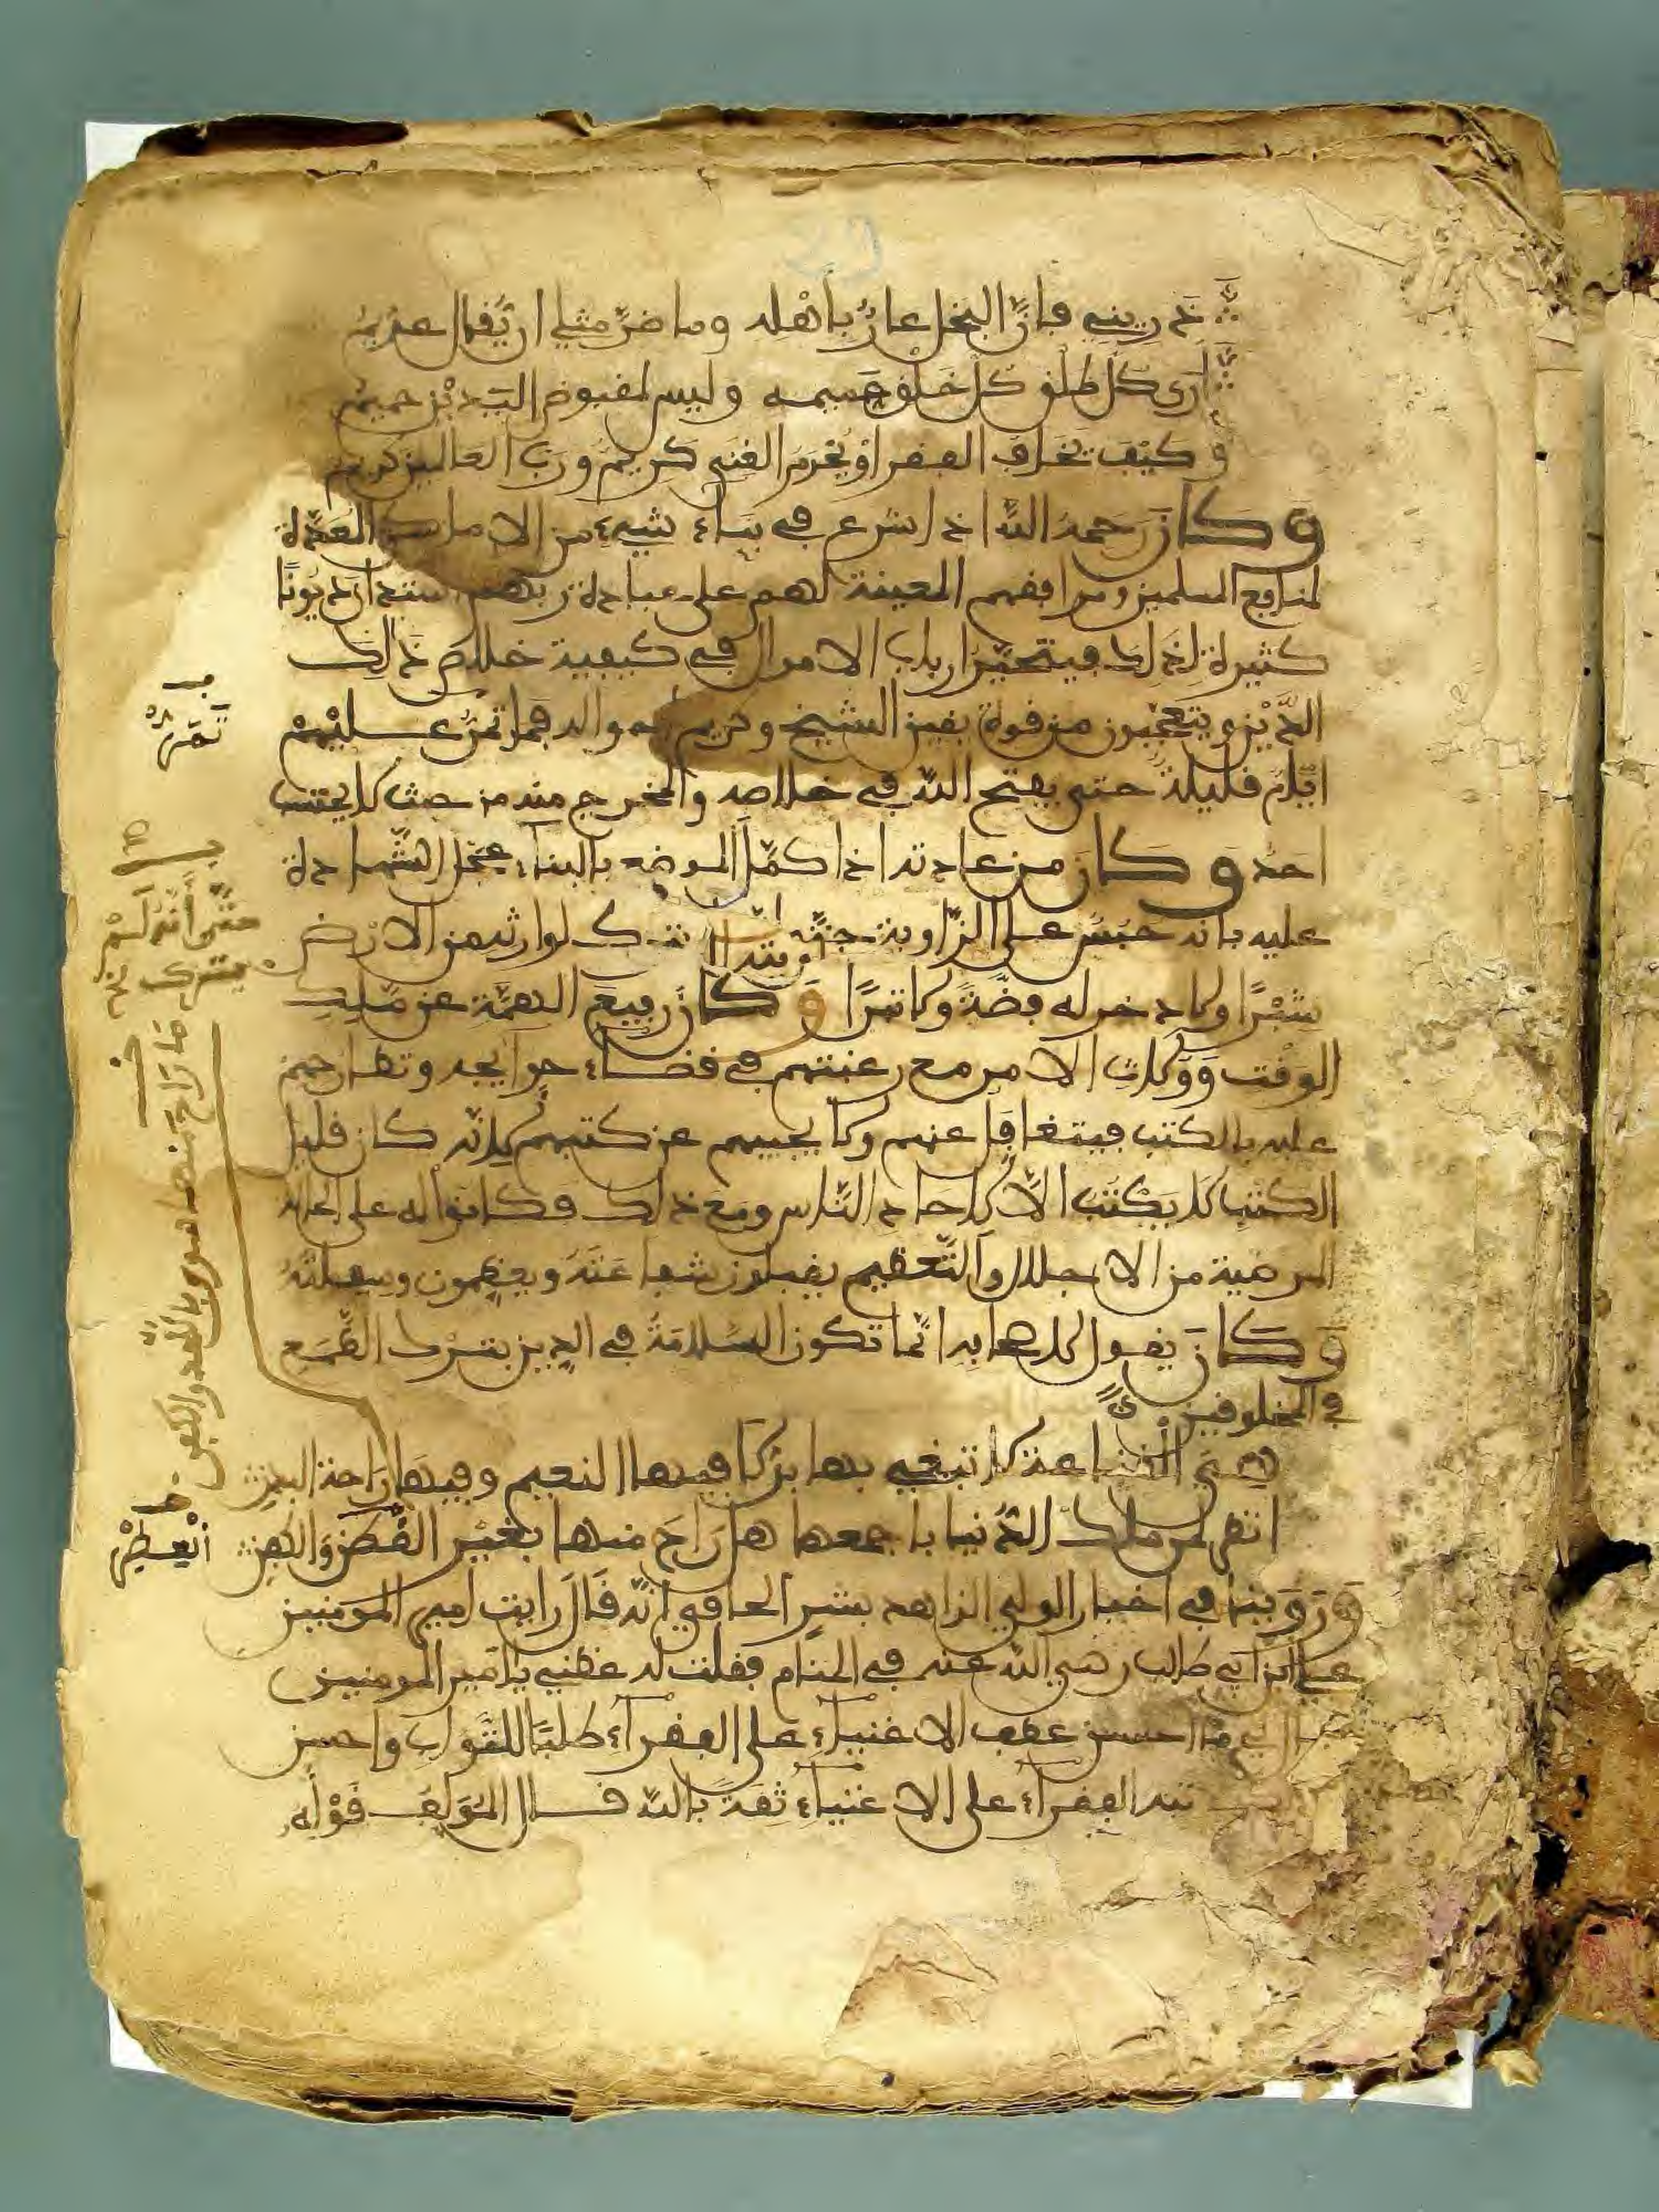 ذريني فإنّ البخل عارٌ بأهله وما ضرّ مثلي ان يُقال عديمُ
أرى كل طلْق كل خلْق حميمه وليس لمقبوض اليديْن حميمُ
وكيْف يخاف الفقر أوْ يُحْرَمُ الغنى كريمٌ وربّ العالمين كريم
وكان رحمه اللّه اذا شرع في بناء شيء من الاماكن المعدّة
لمنافع المسلمين ومرافقهم المعينة لهم على عبادة ربهم استدان ديونًا
كثيرة لذلك فيتحيّر ارباب الاموال في كيفية خلاص ذالك
الدَّيْن ويتعجّبون من قوة يقين الشيخ وكريم احواله فما تمرّ عليْهمْ
ايّام قليلة حتى يفتح اللّه في خلاصه والمخرج منه من حيث لا يحتسب
احدٌ وكان من عادته اذا كمّل الموضع بالبناء عجّل الشّهادة
عليه بانه حبُس على الزّاوية حتّى أنّه لم يترك لوارثه من الارْض
شبْرًا ولا دخر له فضّةً ولا تبرًا وكان رفيع الهمّة عن ملك
الوقت وَوُلاة الامر مع رغبتهم في قضاء حوائجه وتطارحهم
عليه بالكتب فيتغافل عنهم ولا يجيبهم عن كتبهم لانّه كان قليل
الكتب لا يكْتبُ الاّ لآحاد النّاس ومع ذلك فكانوا له على الحالة
المرضية من الاجلال والتّعظيم يقبلون شفاعَتَهُ ويعظمون وسيلتَهُ
وكان يقول لاصحابه انّما تكون السّلامَةُ في الدين بترْك الطّمَع
في المخلوفين
هي القناعة لا تبغي بها بدَلاً فيها النعيم وفيها راحة البدن
انظر لمن ملك الدّنيا باجمعها هل رَاحَ منها بغيْر القطن والكفن
ورَوَيْنا في اخبار الولي الزاهد بشر الحافي انّه قالَ رايت امير المومنين
علي ابن ابي طالب رضي اللّه عنه في المنام فقلت له عظني يا امير المومنين
فقال لي ما احسن عطف الاغنياء على الفقراء طلبًا للثّواب واحسن
تيه الفقراء على الاغنياء ثقةً باللّه قال المؤلف قوْله
تَمُرّ
حتّى أنّه لَمْ يترك
ما راح منها سوى باللحد والكفن
انْظرْ